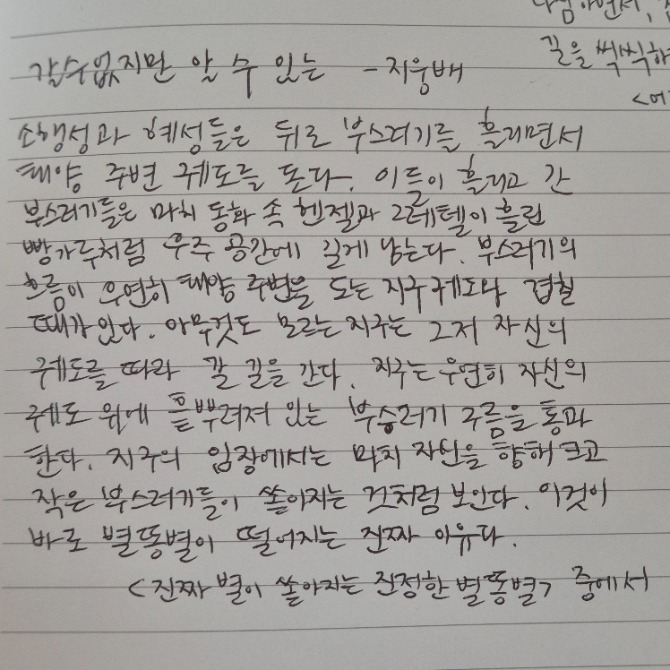 나
길을 씩씩하
<어
갈 수 없지만 알 수 있는 - 지웅배
소행성과 혜성들은 뒤로 부스러기를 흘리면서
태양 주변 궤도를 돈다. 이들이 흘리고 간
부스러기들은 마치 동화 속 헨젤과 그레텔이 흘린
빵가루처럼 우주 공간에 길게 남는다. 부스러기의
흐름이 우연히 태양 주변을 도는 지구 궤도와 겹칠
때가 있다. 아무것도 모르는 지구는 그저 자신의
궤도를 따라 갈 길을 간다. 지구는 우연히 자신의
궤도 위에 흩뿌려져 있는 부스러기 구름을 통과
한다. 지구의 입장에서는 마치 자신을 향해 크고
작은 부스러기들이 쏟아지는 것처럼 보인다. 이것이
바로 별똥별이 떨어지는 진짜 이유다.
<진짜 별이 쏟아지는 진정한 별똥별> 중에서